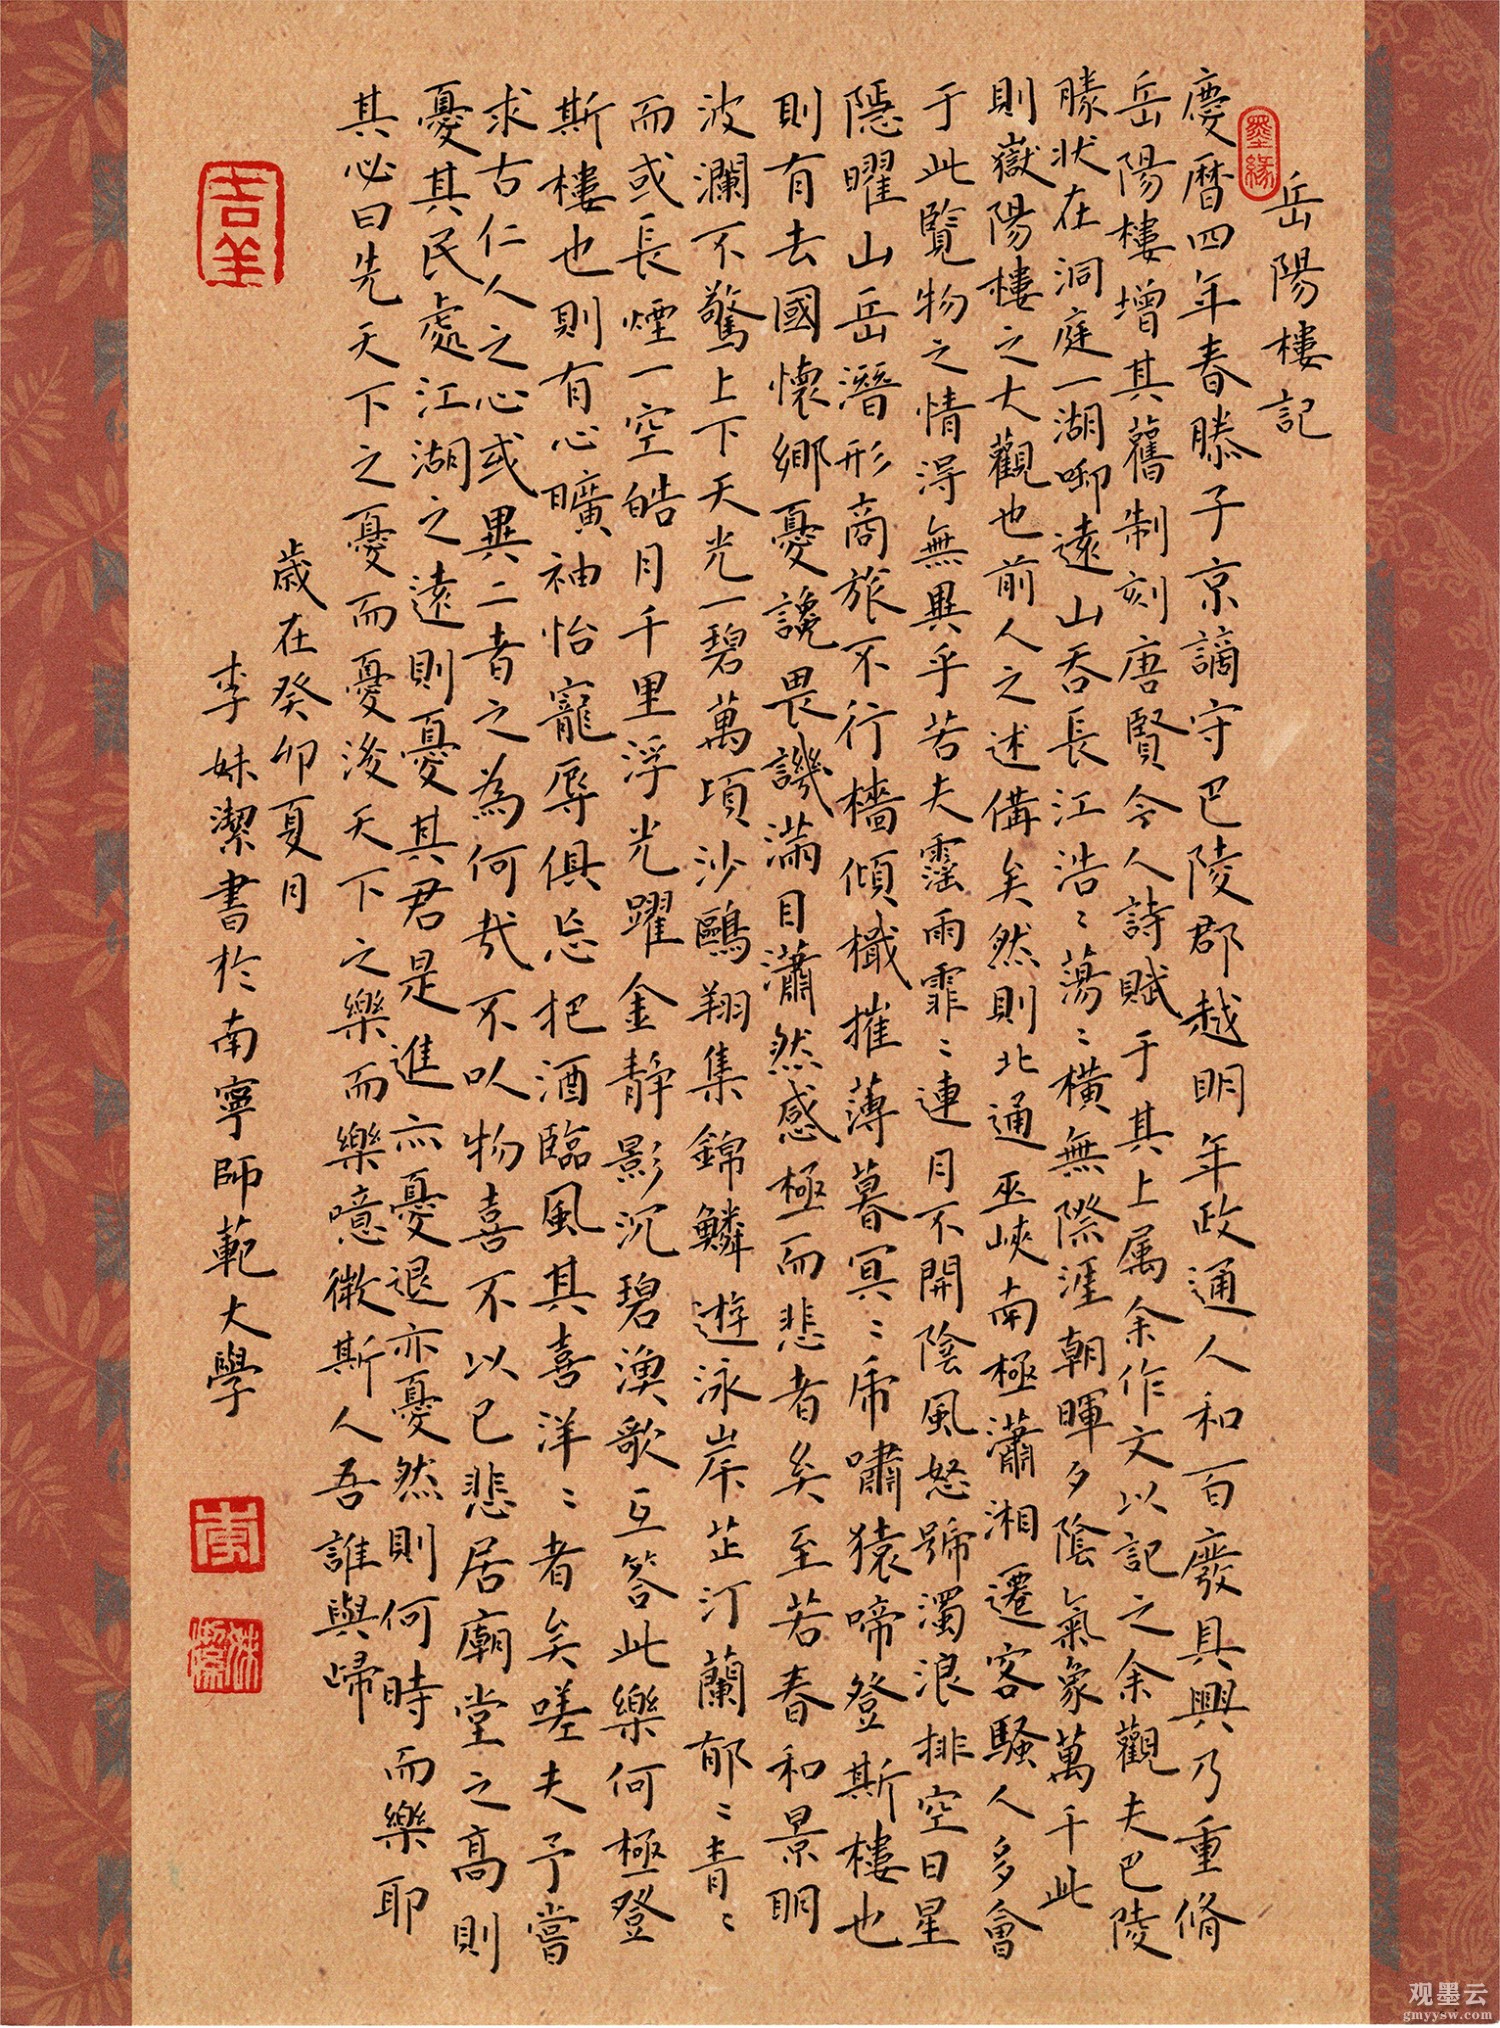 岳陽樓記
慶曆四年春滕子京謫守巴陵郡越明年政通人和百廢具興乃重脩
岳陽樓增其舊制刻唐賢今人詩賦于其上属余作文以記之余觀夫巴陵
勝状在洞庭一湖啣遠山吞長江浩〻蕩〻橫無際涯朝暉夕陰氣象萬千此
則嶽陽樓之大觀也前人之述俻矣然則北通巫峽南極瀟湘遷客騷人多會
于此覽物之情得無異乎若夫霪雨霏〻連月不開陰風怒號濁浪排空日星
隱曜山岳潛形商旅不行檣傾檝摧薄暮冥〻虎嘯猿啼登斯樓也
則有去國懷鄉憂讒畏譏滿目瀟然感極而悲者矣至若春和景明
波瀾不驚上下天光一碧萬頃沙鷗翔集錦鱗遊泳岸芷汀蘭郁〻青〻
而或長煙一空皓月千里浮光躍金静影沉碧漁歌互答此樂何極登
斯樓也則有心曠袖怡寵辱俱忘把酒臨風其喜洋〻者矣嗟夫予嘗
求古仁人之心或異二者之為何哉不以物喜不以己悲居廟堂之高則
憂其民處江湖之遠則憂其君是進亦憂退亦憂然則何時而樂耶
其必曰先天下之憂而憂後天下之樂而樂噫微斯人吾誰與歸
歲在癸卯夏月
李妹潔書於南寧師範大學
墨緣
吉羊
李
妹潔
观墨云
gmyysw.com